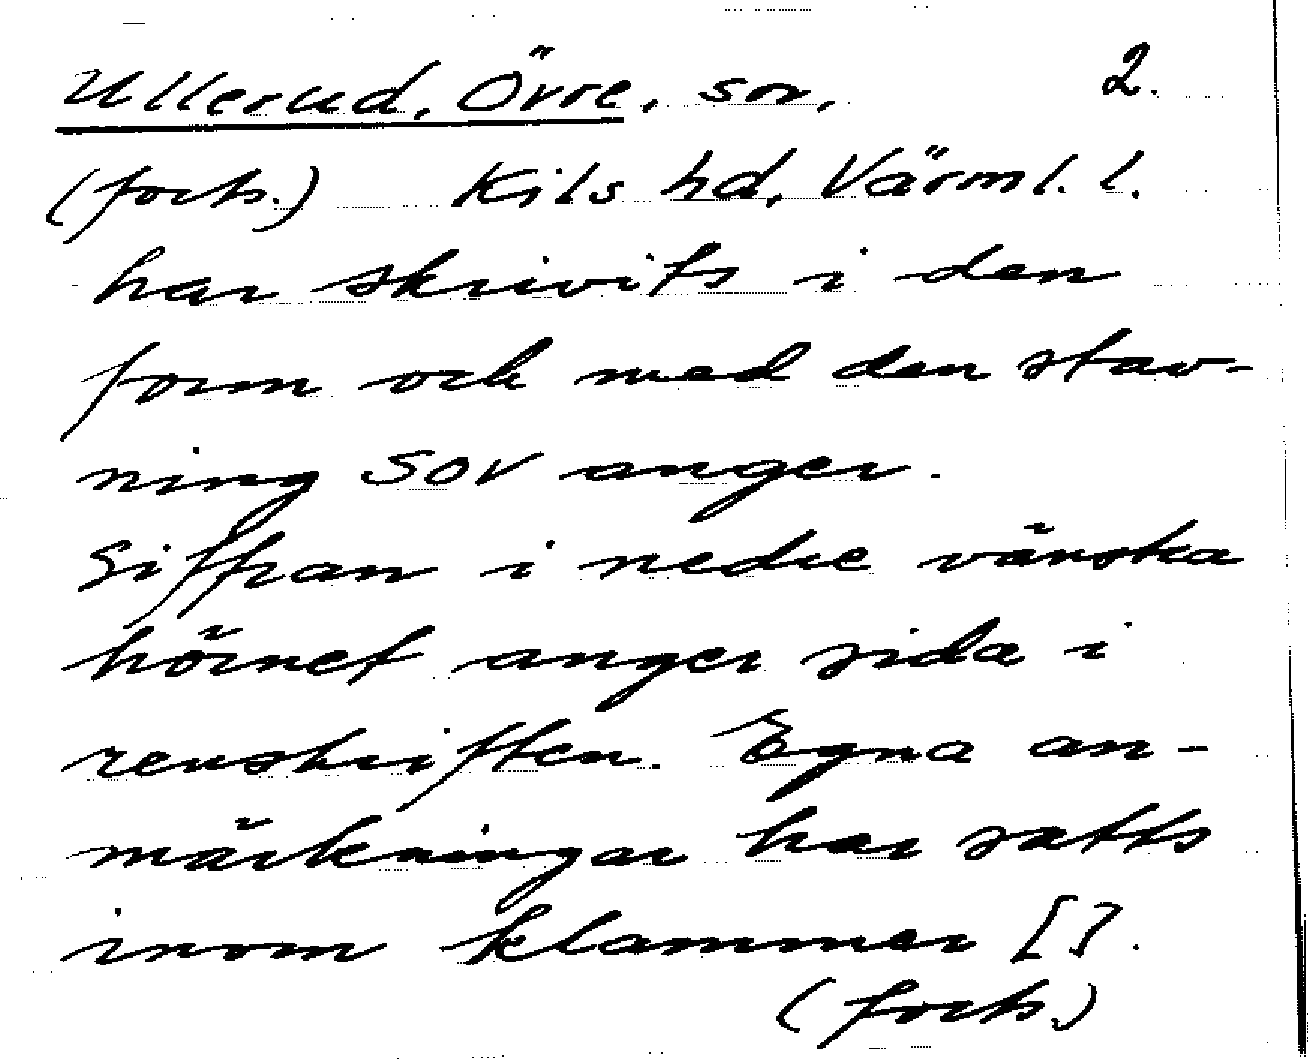 Ullerud, Övre, sn, 2.
(forts.) Kils hd, Värml. l.
har skrivits i den
form och med den stav-
ning SOV anger.
Siffran i nedre vänstra
hörnet anger sida i
renskriften. Egna an-
märkningar har satts
inom klammer [].
(forts.)